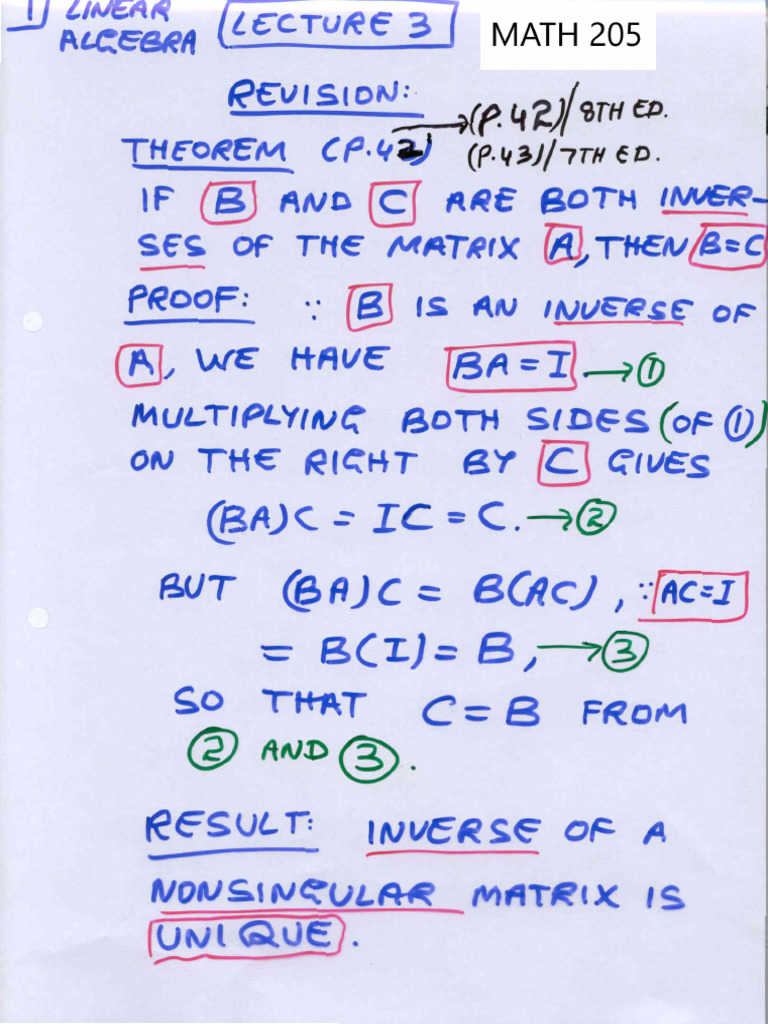 1) LINEAR ALGEBRA LECTURE 3 MATH 205
REVISION:
THEOREM (P.42) → (P.42)/8TH ED.
(P.43)/7TH ED.
IF B AND C ARE BOTH INVER-
SES OF THE MATRIX A, THEN B=C
PROOF: ∵ B IS AN INVERSE OF
A, WE HAVE BA = I → ①
MULTIPLYING BOTH SIDES (OF ①)
ON THE RIGHT BY C GIVES
(BA)C = IC = C. → ②
BUT (BA)C = B(AC), ∵ AC=I
= B(I) = B, → ③
SO THAT C = B FROM
② AND ③.
RESULT: INVERSE OF A
NONSINGULAR MATRIX IS
UNIQUE.